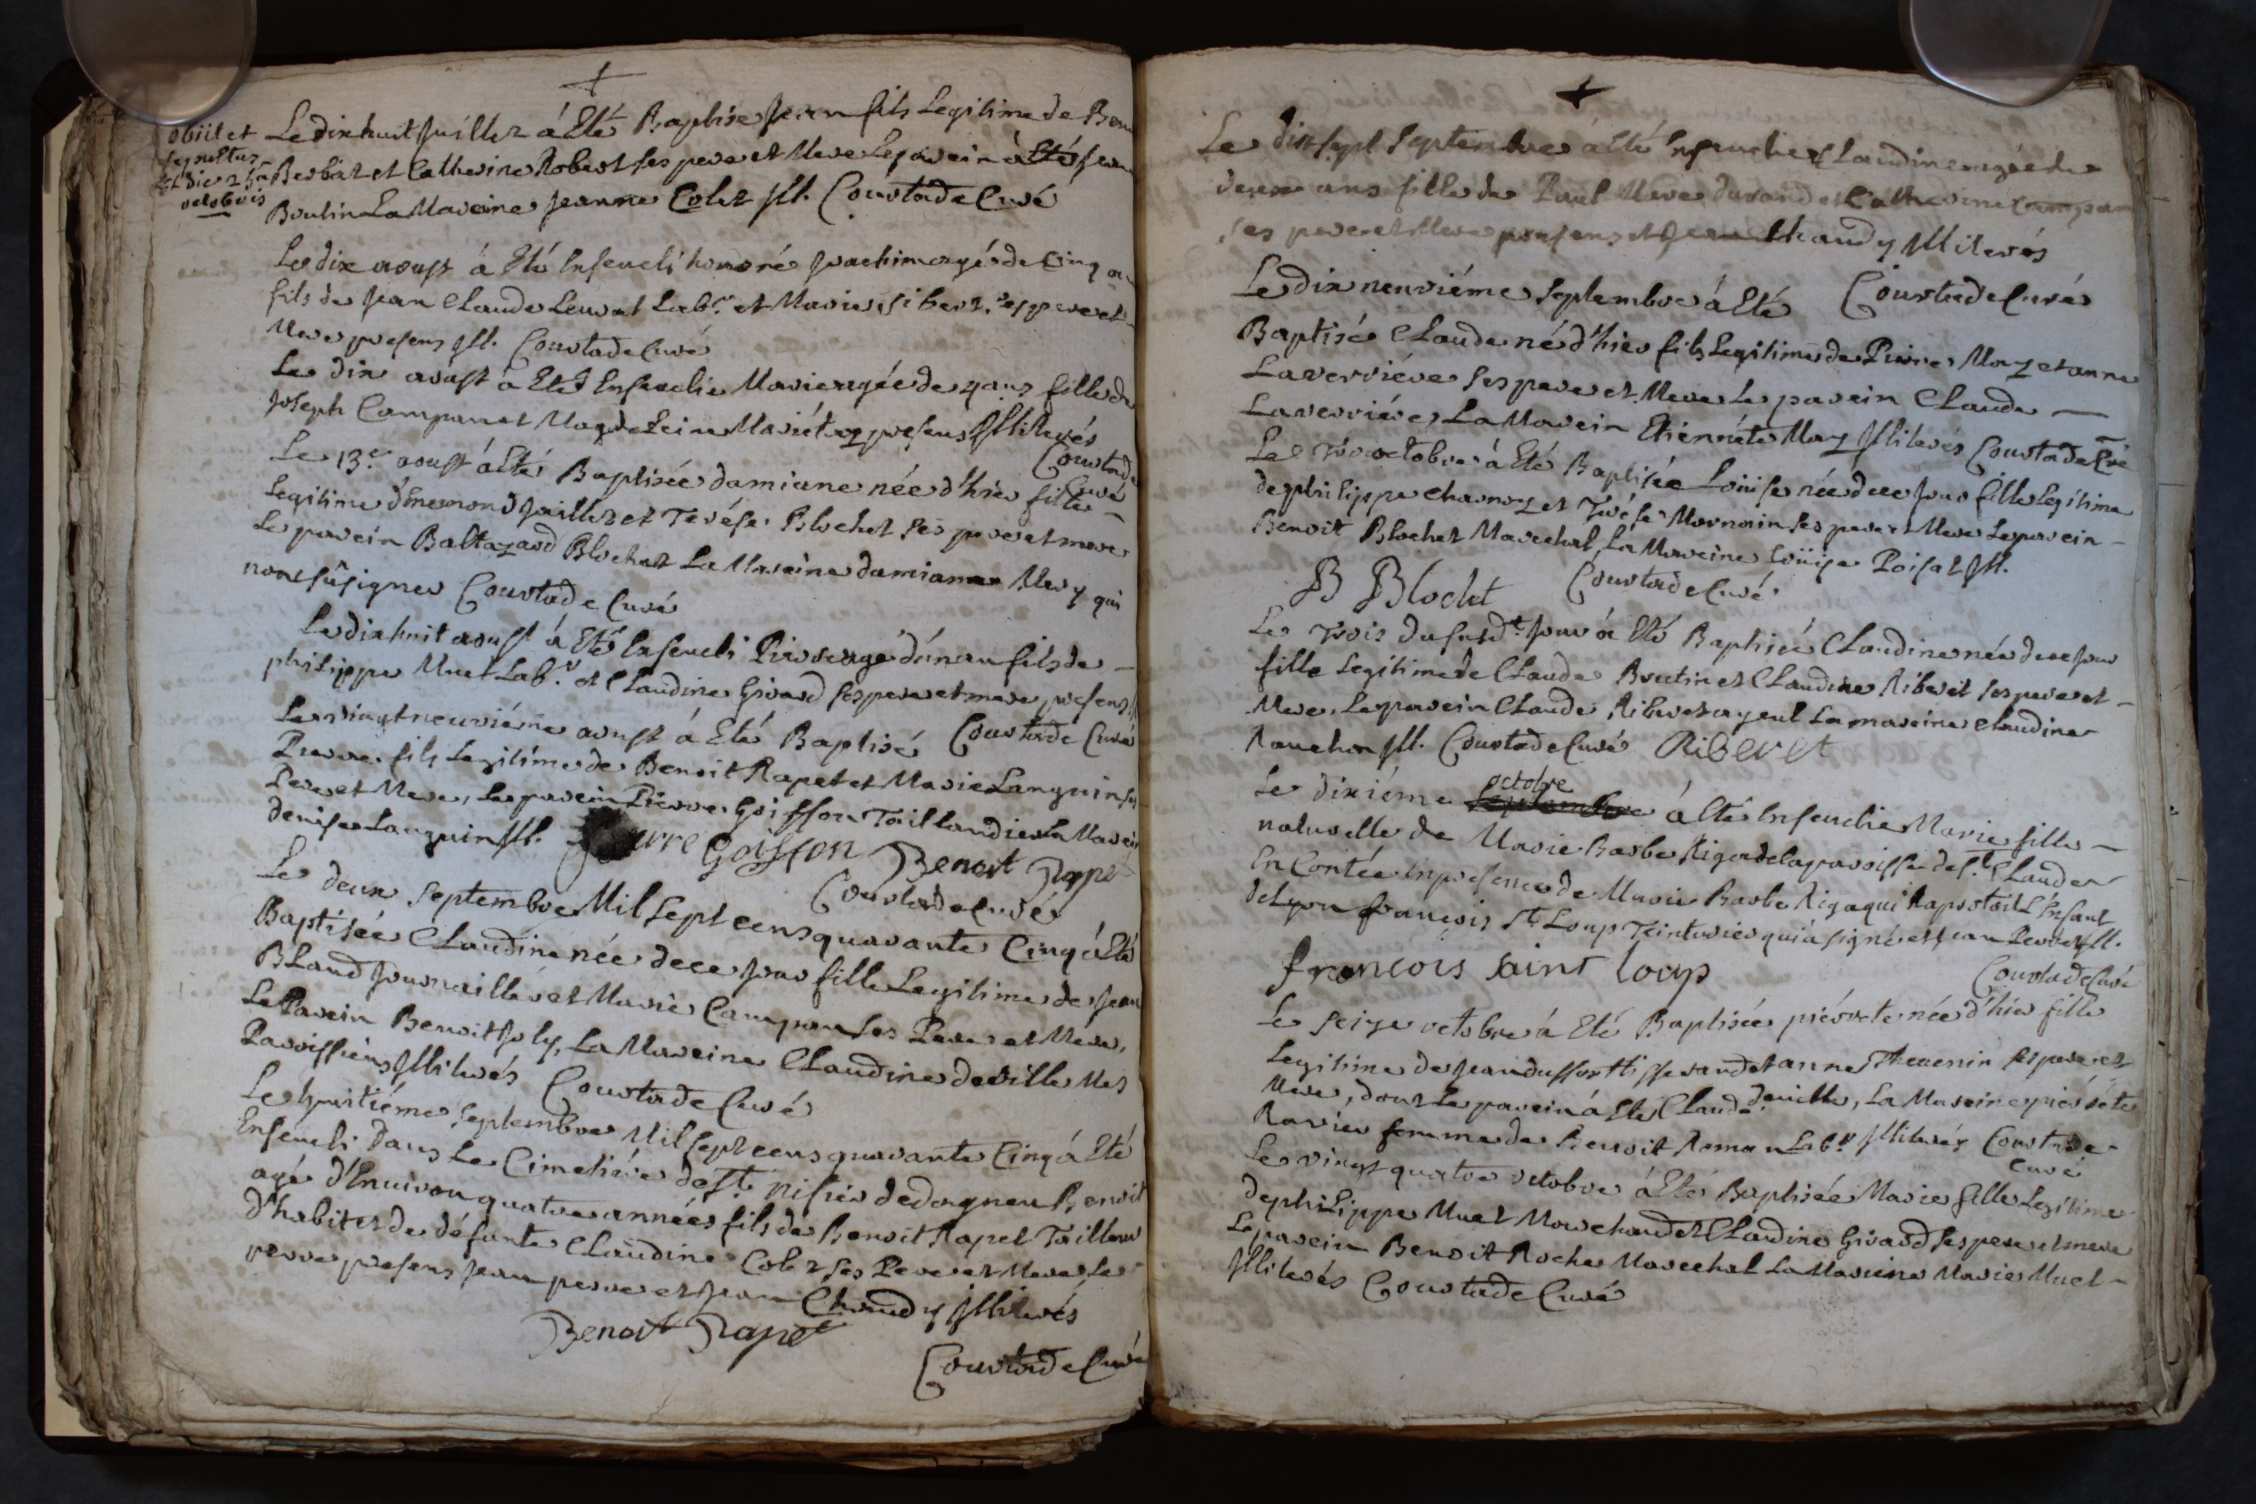 obiit et
sepultus
octobris
Le dix huit Juillet á Eté Baptise Jean fils Legitime de Ben
Berbet et Catherine Robert ses pere et Mere Le parein á Eté Jean
Boulin La Mareine Jeanne Colet Ill. Courtade Curé
Le dix aoust á Eté Enseueli honoré Joachim agé de Cinq an
fils de Jean Claude Leurat Labr. et Marie Sibert ses pere et
Mere presens Ill. Courtade Curé
Le dix aoust á Eté Enseuelie Marie agée de 4 ans fille de
Joseph Campan et Magdeleine presens Illiterés
Courtade
Curé
Le 13e. aoust á Eté Baptisée damiane née d'hier fille
Legitime d'Enemond Juillet et Terése Blochet ses pere et mere
Le parein Baltazard Blochet La Mareine damiane Mery qui
n'ont sû signer Courtade Curé
Le dix huit aoust á Eté Enseueli Pierre agé d'un an fils de
philippe Muet Labr. et Claudine Girard ses pere et mere presens Ill
Courtade Curé
Le vingt neuviéme aoust á Eté Baptisé
Pierre fils Legitime de Benoit Rapet et Marie Languin ses
Pere et Mere, Le parein Pierre Goiffon Taillandier La Marei
denise Languin Ill. Pierre Goiffon Benoit Rapet
Courtade Curé
Le deux Septembre Mil Sept cens quarante Cinq á Eté
Baptisée Claudine née de ce jour fille Legitime de Jean
Bland Journaillier et Marie Campan ses Pere et Mere,
Le Parein Benoit Joly, La Mareine Claudine deville Mes
Paroissiens Illiterés Courtade Curé
Le huitiéme Septembre Mil Sept cens quarante Cinq á Eté
Enseueli dans Le Cimetiére de St. nisier de dagneu Benoit
agé d'Environ quatre années fils de Benoit Rapet Tailleur
d'habits et de défunte Claudine Colet ses Pere et Mere Le
pere presens Jean perre et Jean Chaudy Illiterés
Benoit Rapet
Courtade Curé
Le dix sept Septembre á Eté Enseuelie Claudine agée de
deux ans fille de Paul Mere durand et Catherine Campan
ses pere et Mere presens et Jean Chaudy Illiterés
Courtade Curé
Le dix neuviéme Septembre á Eté
Baptisé Claude né d'hier fils Legitime de Pierre May et anne
Laverriére ses pere et Mere Le parein Claude
Laverriére, La Marein Etiennéte May Illiterés Courtade Cré
Le Trois octobre á Eté Baptisée Loüise née de ce jour fille Legitime
de philippe Charnoz et Terése Mornoin ses pere et Mere Le parein
Benoit Blochet Marechal La Mareine Loüise Poisat Ill.
B Blochet Courtade Curé
Le Trois du susdt. jour á Eté Baptisée Claudine née de ce jour
fille Legitime de Claude Boutin et Claudine Riberet ses pere et
Mere, Le parein Claude Riberet ayeul La mareine claudine
Rauchon Ill. Courtade Curé Riberet
octobre
Le dixiéme Septembre á Eté Enseuelie Marie fille
naturelle de Marie Barbe Riga de la paroisse de St. Claude
En Contée En presence de Marie Barbe Riga qui Raportoit L'Enfant
de Lyon françois St Loup Teinturier qui á signé et Jean Perret Ill.
françois saint loup
Courtade Curé
Le seize octobre á Eté Baptisée piérrete née d'hier fille
Legitime de Jean dussort tisserand et anne Thevenin ses pere et
Mere, dont Le parein á Eté Claude deville, La Mareine piérréte
Ravier femme de Benoit Roman Labr. Illiterés Courtade
Curé
Le vingt quatre octobre á Eté Baptisée Marie fille Legitime
de philippe Muet Marechand et Claudine Girard ses pere et mere
Le parein Benoit Roche Marechal La Mareine Marie Muet
Illiterés Courtade Curé